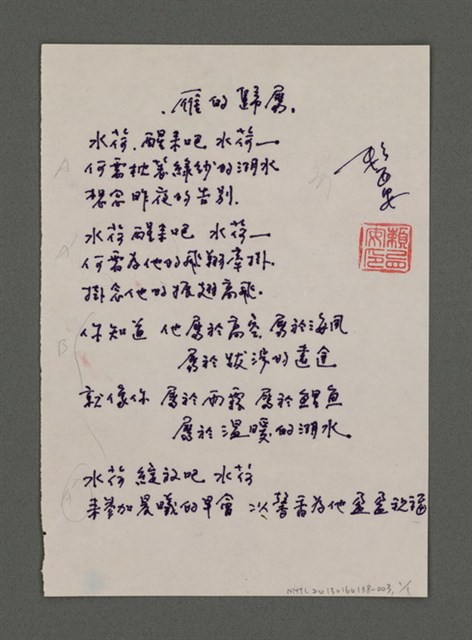 .雁的歸屬.
水荷.醒來吧 水荷—
何需枕著綠紗的湖水
想念昨夜的告別.
水荷醒來吧 水荷—
何需為他的飛翔牽掛.
掛念他的振翅高飛.
你知道 他屬於高空 屬於海風
屬於跋涉的遠途
就像你 屬於雨霧 屬於鯉魚
屬於溫暖的湖水。
水荷 綻放吧 水荷
來參加晨曦的早會 以馨香為他盈盈祝福
A
A'
B
NMTL20130160198-003, 1/1